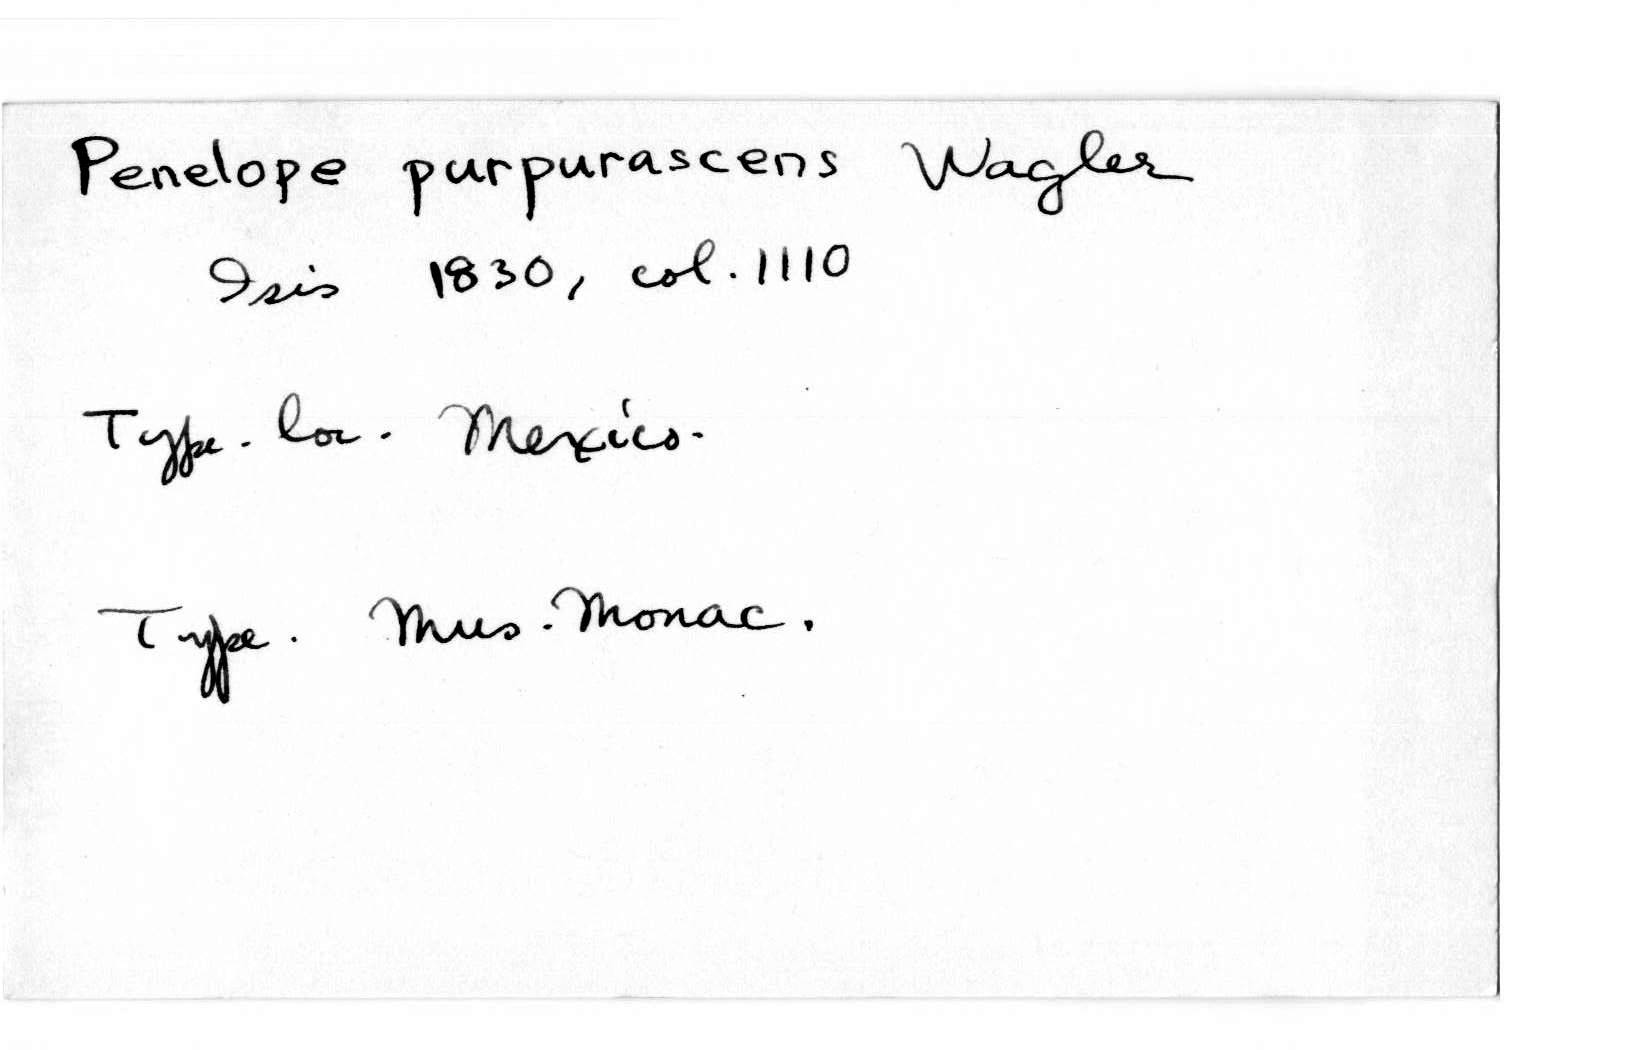 Penelope purpurascens Wagler
Isis 1830, col. 1110
Type. loc. Mexico.
Type. Mus. Monac.